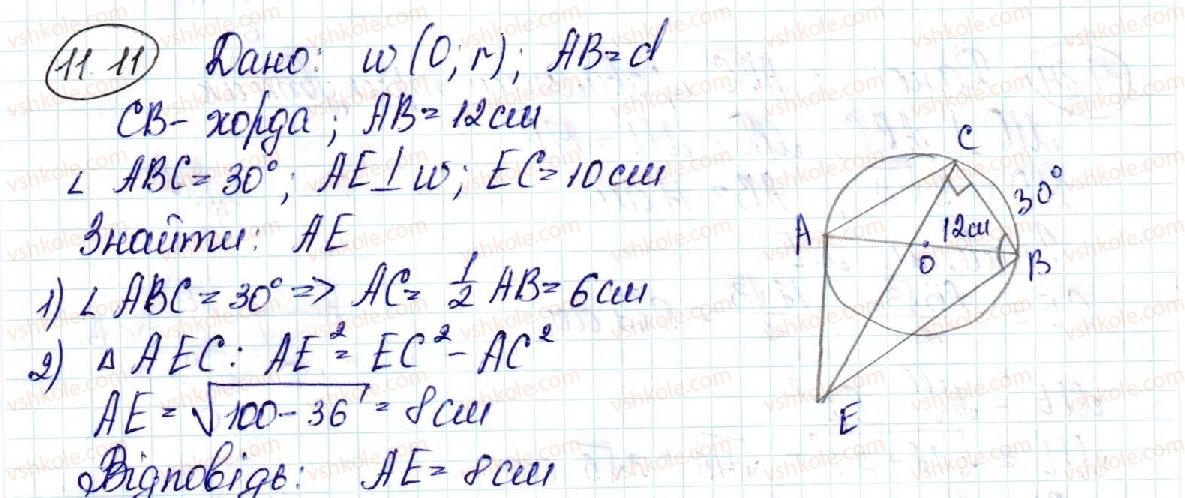 11.11 Дано: w (O; r); AB = d
CB - хорда; AB = 12 см
∠ ABC = 30°; AE ⊥ w; EC = 10 см
Знайти: AE
1) ∠ ABC = 30° => AC = 1/2 AB = 6 см
2) △ AEC: AE² = EC² - AC²
AE = √100 - 36 = 8 см
Відповідь: AE = 8 см
C
30°
A
12 см
O
B
E
vshkole.com